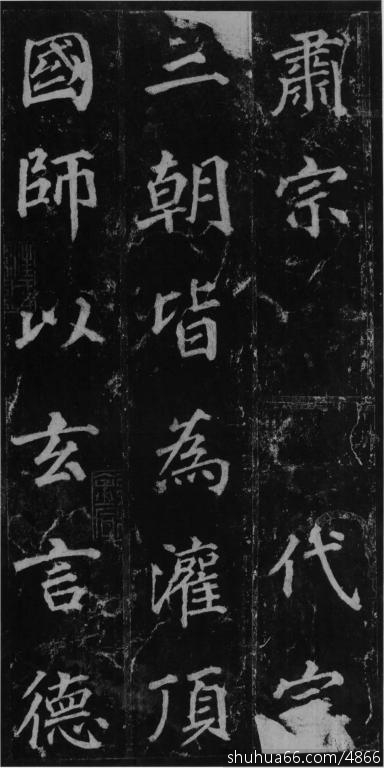 肅宗 代宗
三朝皆為灌頂
國師以玄言德
shuhua66.com/4866